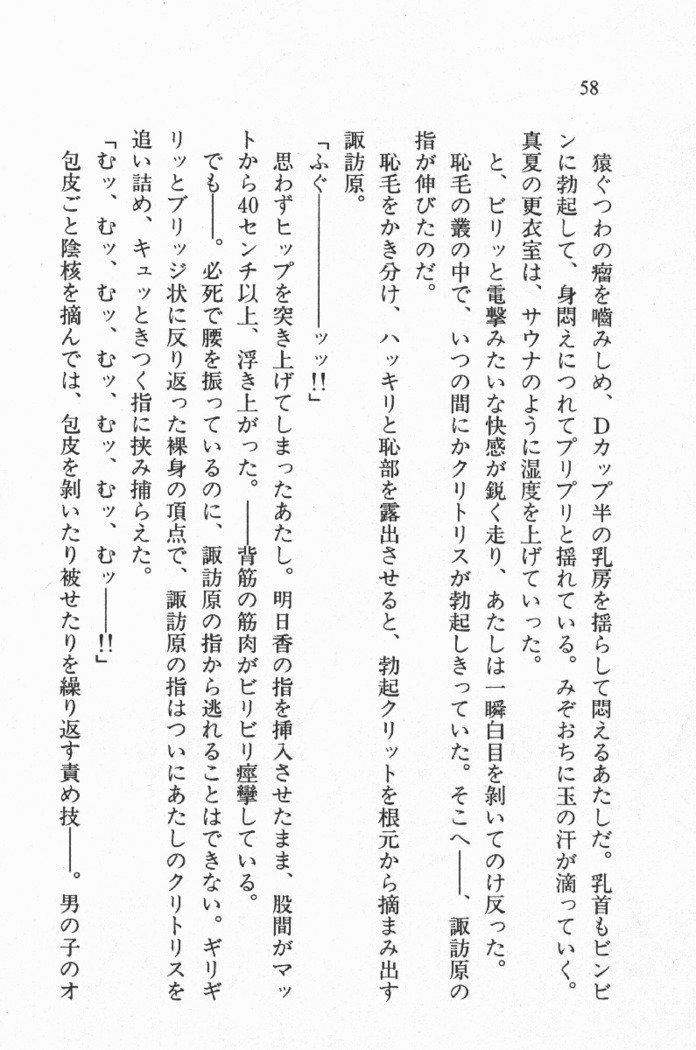 58
猿ぐつわの瘤を嚙みしめ、Dカップ半の乳房を揺らして悶えるあたしだ。乳首もビンビ
ンに勃起して、身悶えにつれてプリプリと揺れている。みぞおちに玉の汗が滴っていく。
真夏の更衣室は、サウナのように湿度を上げていった。
と、ビリッと電撃みたいな快感が鋭く走り、あたしは一瞬白目を剝いてのけ反った。
恥毛の叢の中で、いつの間にかクリトリスが勃起しきっていた。そこへ――、諏訪原の
指が伸びたのだ。
恥毛をかき分け、ハッキリと恥部を露出させると、勃起クリットを根元から摘まみ出す
諏訪原。
「ふぐ――――――ッッ!!」
思わずヒップを突き上げてしまったあたし。明日香の指を挿入させたまま、股間がマッ
トから40センチ以上、浮き上がった。――背筋の筋肉がビリビリ痙攣している。
でも――。必死で腰を振っているのに、諏訪原の指から逃れることはできない。ギリギ
リッとブリッジ状に反り返った裸身の頂点で、諏訪原の指はついにあたしのクリトリスを
追い詰め、キュッときつく指に挟み捕らえた。
「むッ、むッ、むッ、むッ、むッ、むッ、むッ――!!」
包皮ごと陰核を摘んでは、包皮を剝いたり被せたりを繰り返す責め技――。男の子のオ